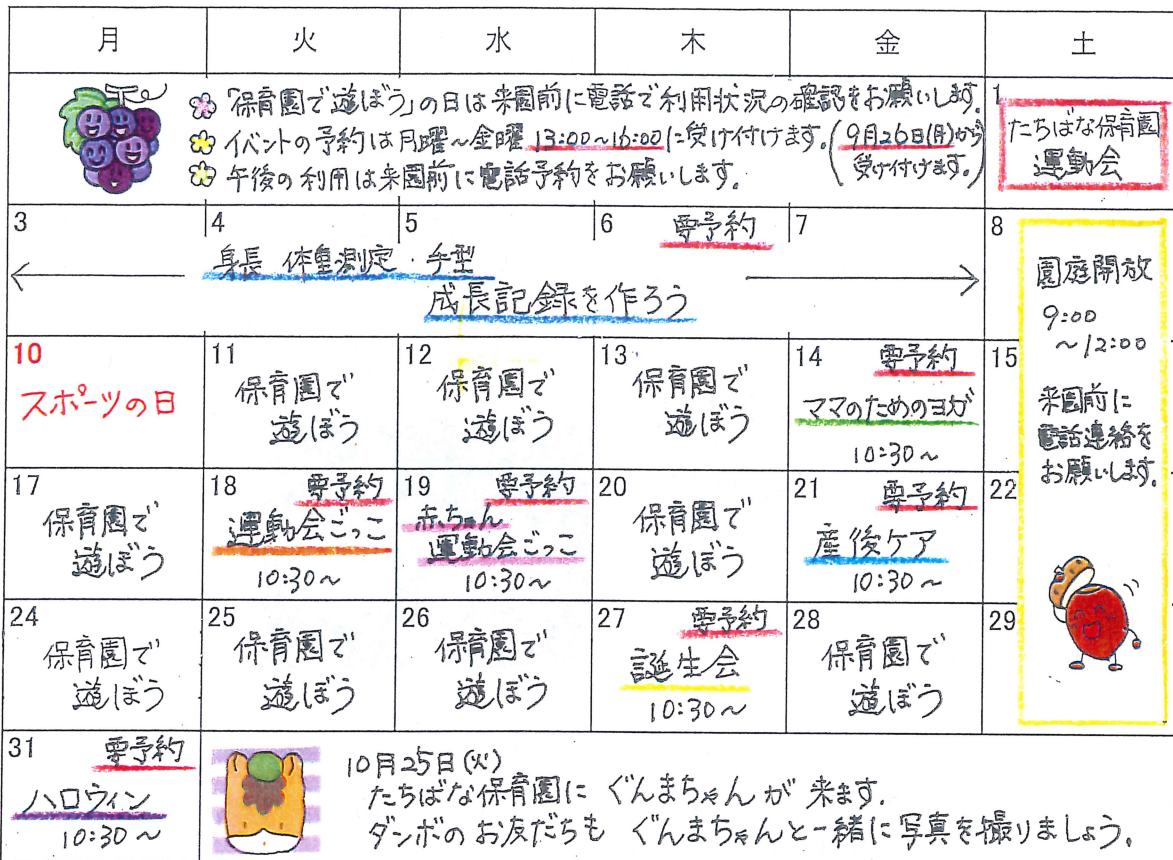 月 火 水 木 金 土
「保育園で遊ぼう」の日は来園前に電話で利用状況の確認をお願いします。
イベントの予約は月曜～金曜 13:00～16:00に受け付けます。(9月26日(月)から
受け付けます。)
午後の利用は来園前に電話予約をお願いします。
1
たちばな保育園
運動会
3 4 5 6 7
要予約
身長 体重測定・手型
成長記録を作ろう
8
園庭開放
9:00
～12:00
来園前に
電話連絡を
お願いします。
10
スポーツの日
11
保育園で
遊ぼう
12
保育園で
遊ぼう
13
保育園で
遊ぼう
14 要予約
ママのためのヨガ
10:30～
15
17
保育園で
遊ぼう
18 要予約
運動会ごっこ
10:30～
19 要予約
赤ちゃん
運動会ごっこ
10:30～
20
保育園で
遊ぼう
21 要予約
産後ケア
10:30～
22
24
保育園で
遊ぼう
25
保育園で
遊ぼう
26
保育園で
遊ぼう
27 要予約
誕生会
10:30～
28
保育園で
遊ぼう
29
31 要予約
ハロウィン
10:30～
10月25日(火)
たちばな保育園に ぐんまちゃんが 来ます。
ダンボのお友だちも ぐんまちゃんと一緒に写真を撮りましょう。